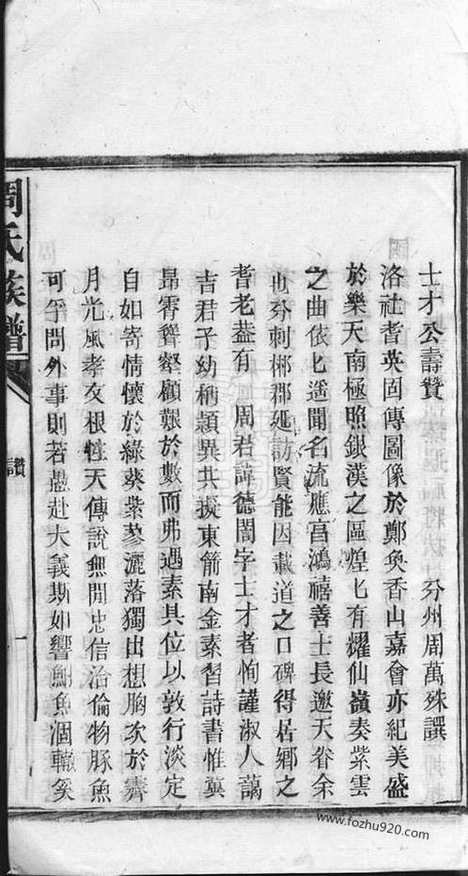 士才公壽贊
分州周萬殊譔
洛社耆英固傳圖像於鄭奐香山嘉會亦紀美盛
於樂天南極照銀漢之區煌匕有耀仙嶺奏紫雲
之曲依匕遥聞名流應宫鴻禧善士長邀天眷余
也分刺郴郡延訪賢能因載道之口碑得居鄉之
耆老葢有 周君諱德闇字士才者恂謹淑人藹
吉君子幼稱穎異共擬東箭南金素習詩書惟冀
昻霄聳壑顧艱於數而弗遇素具位以敦行淡定
自如寄情懷於綠葵紫蓼灑落獨出想胸次於霽
月光風孝友根性天傳說無間忠信洽倫物豚魚
可孚問外事則若愚赴大義斯如響鮒魚涸轍奚
周氏族譜
贊
一
www.fozhu920.com